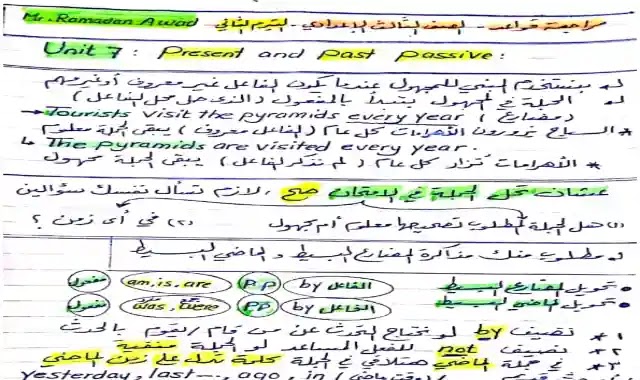 Mr. Ramadan Awad مراجعة قواعد - الصف الثالث الإعدادي - الترم الثاني
Unit 7 : Present and Past Passive :
بنستخدم المبني للمجهول عندما يكون الفاعل غير معروف أو غير مهم
الجملة في المجهول بتبدأ بالمفعول (الذي حل محل الفاعل)
Tourists visit the pyramids every year (مضارع)
* السياح يزورون الأهرامات كل عام (الفاعل معروف) يبقى الجملة معلوم
The pyramids are visited every year.
* الأهرامات تُزار كل عام (لم نذكر الفاعل) يبقى الجملة مجهول
عشان تحل الجملة في الامتحان صح، لازم تسأل نفسك سؤالين
(١) هل الجملة المطلوب تصحيحها معلوم أم مجهول (٢) في أي زمن ؟
مطلوب منك مذاكرة المضارع البسيط و الماضي البسيط
• تحويل المضارع البسيط مفعول am, is, are PP by الفاعل
• تحويل الماضي البسيط مفعول was, were PP by الفاعل
١* نضيف by لو نحتاج التحدث عن من قام بالحدث
٢* نضيف not للفعل المساعد لو الجملة منفية
٣* في جملة الماضي هتلاقي في الجملة كلمة تدل على زمن الماضي
yesterday, last ---, ago, in